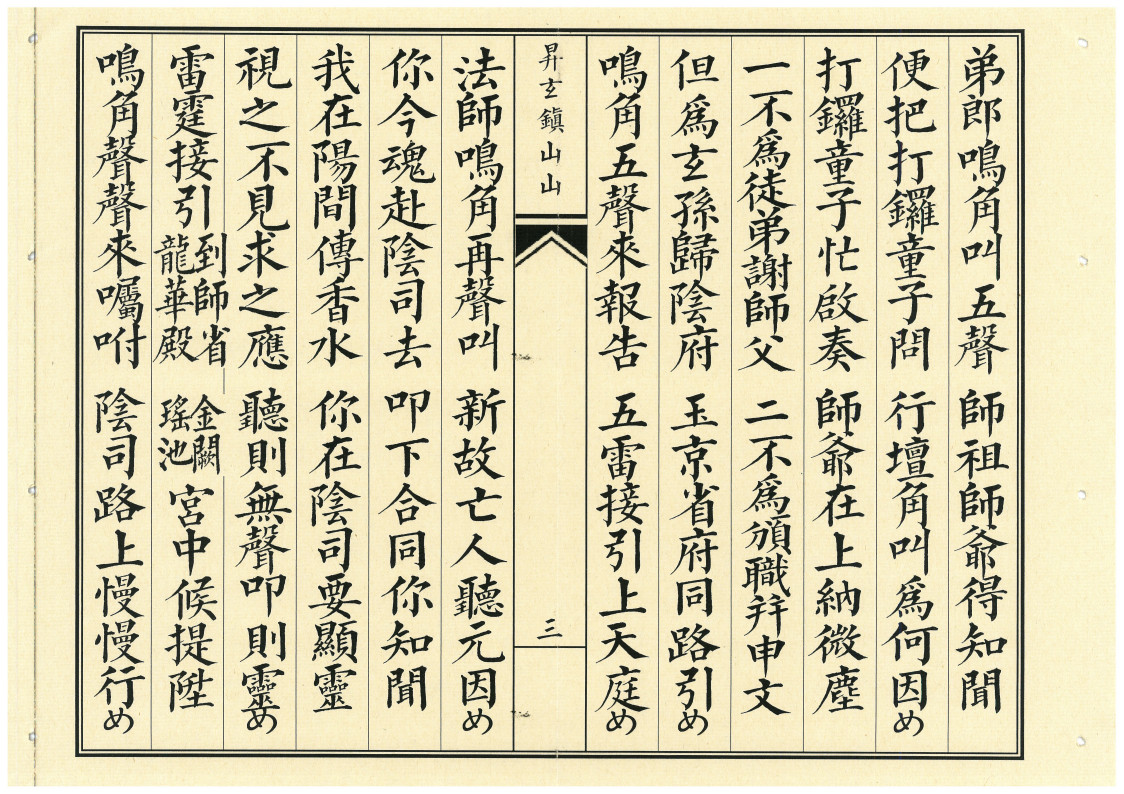 弟郎鳴角叫五聲　師祖師爺得知聞
便把打鑼童子問　行壇角叫爲何因め
打鑼童子忙啟奏　師爺在上納微塵
一不爲徒弟謝師父　二不爲頒職并申文
但爲玄孫歸陰府　玉京省府同路引め
鳴角五聲來報告　五雷接引上天庭め
昇玄鎮山山
三
法師鳴角再聲叫　新故亡人聽元因め
你今魂赴陰司去　叩下合同你知聞
我在陽間傳香水　你在陰司要顯靈
視之不見求之應　聽則無聲叩則靈め
雷霆接引到師省龍華殿　金闕瑤池宮中候提陞
鳴角聲聲來囑咐　陰司路上慢慢行め